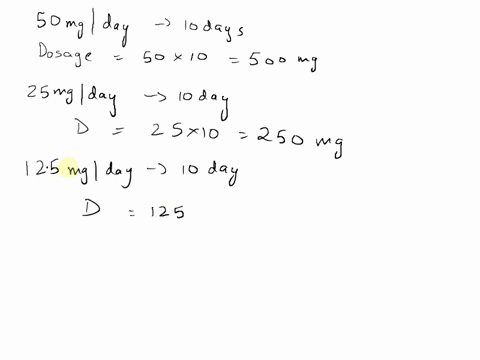 50 mg | day -> 10 days
Dosage = 50 × 10 = 500 mg
25 mg | day -> 10 day
D = 25 × 10 = 250 mg
12.5 mg | day -> 10 day
D = 125